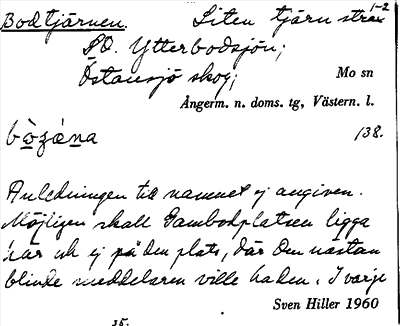 Bodtjärnen. Liten tjärn strax 1-2
SO. Ytterbodsjön;
Östansjö skog; Mo sn
Ångerm. n. doms. tg, Västern. l.
138.
Anledningen till namnet ej angiven.
Möjligen skall Gambodplatsen ligga
här och ej på den plats, där den nästan
blinde meddelaren ville ha den. I varje
Sven Hiller 1960
35.